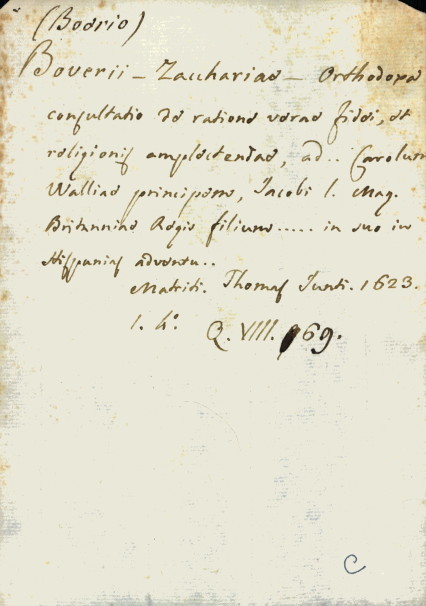 (Boerio)
Boverii - Zacchariae - Orthodoxa
consultatio de ratione verae fidei, et
religionis amplectendae, ad .. Carolum
Walliae principem, Jacobi I. Mag.
Britanniae Regis filium ..... in suo in
Hispanias adventu ..
Matriti. Thomas Junti. 1623.
1. 4°.
Q. VIIII. 969.
C